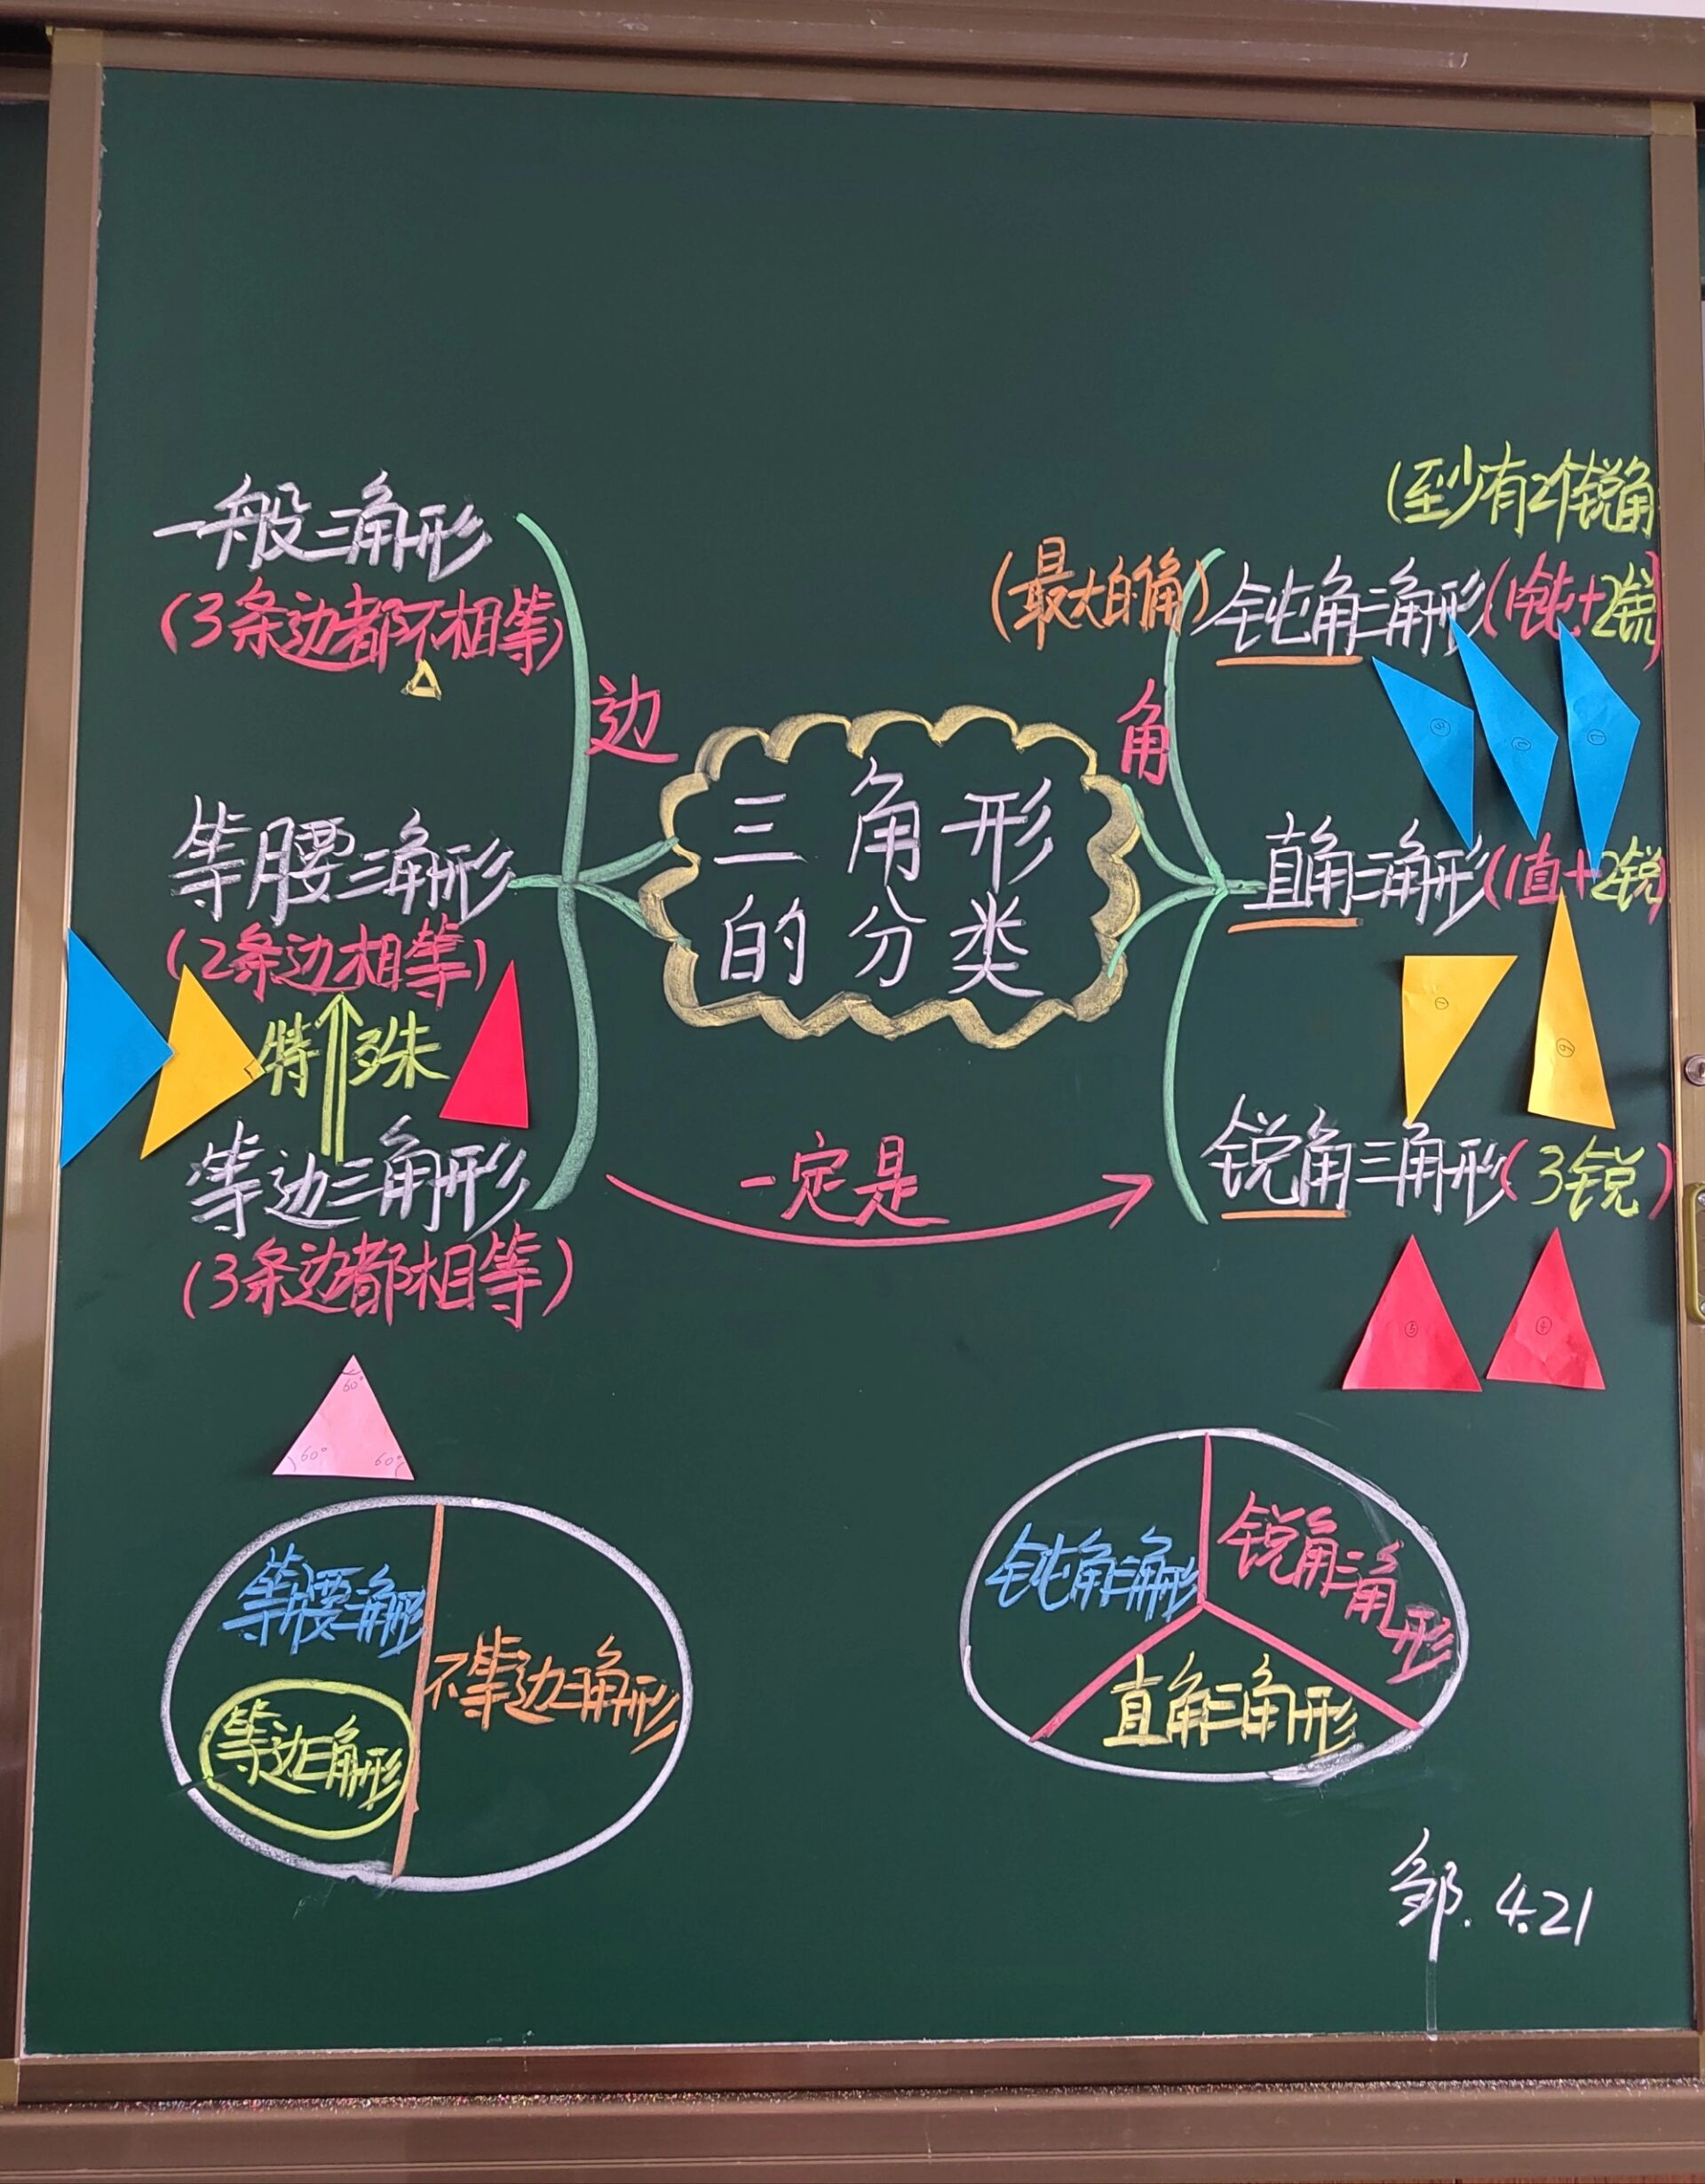 一般三角形
(3条边都不相等)
边
等腰三角形
(2条边相等)
特殊
等边三角形
(3条边都相等)
60°
60° 60°
三角形
的分类
一定是
角
(至少有2个锐角
(最大的角)
钝角三角形(1钝+2锐)
③
直角三角形(1直+2锐)
锐角三角形(3锐)
⑤ ④
等腰三角形
等边三角形
不等边三角形
钝角三角形
锐角三角形
直角三角形
邹. 4.21